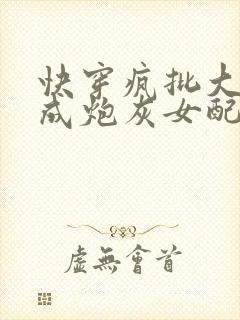 快穿疯批大
成炮灰女配
虚無會首